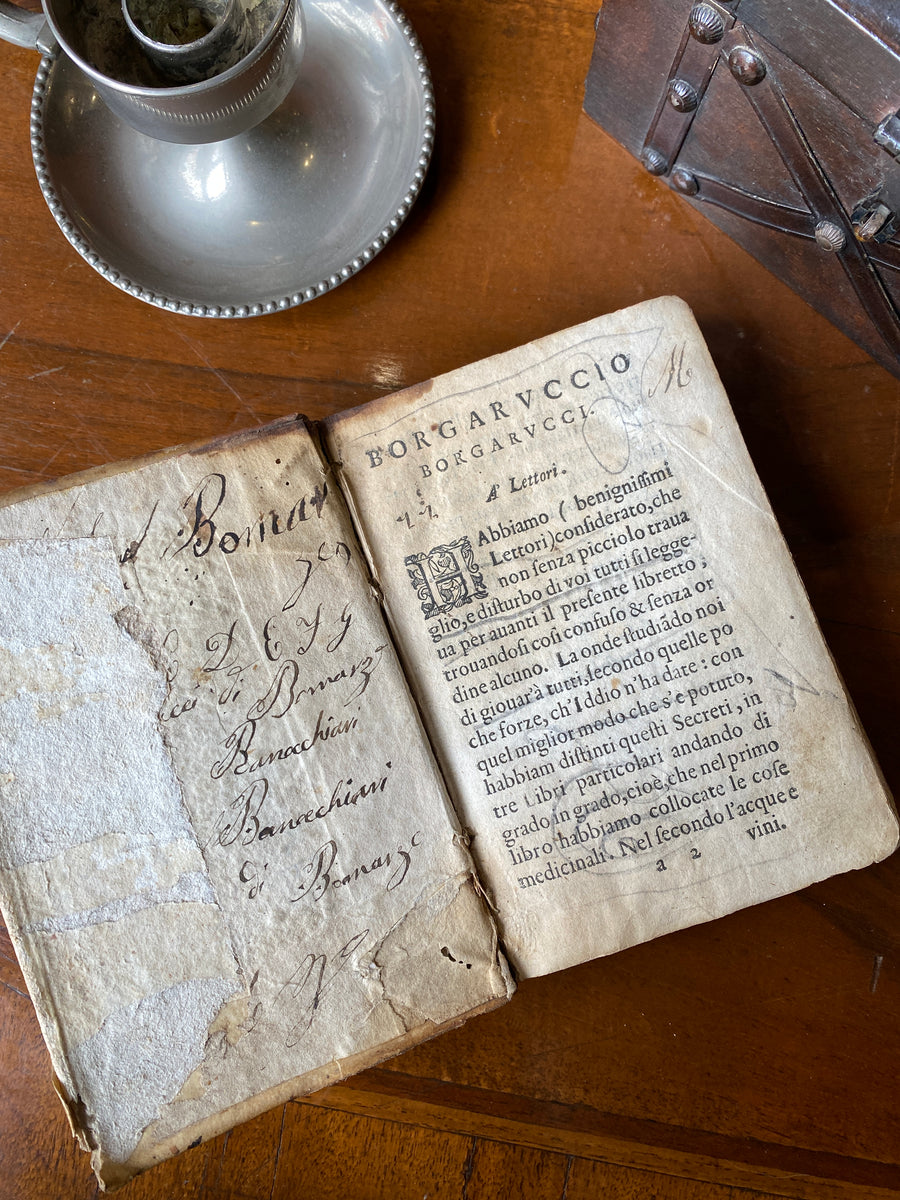 Bomar
D E F G
di Bomarz
Banocchiari
Banocchiari
di Bomarze
BORGARVCCIO
BORGARVCCI.
A' Lettori.
M
HAbbiamo ( benignissimi
Lettori) considerato, che
non senza picciolo traua
glio, e disturbo di voi tutti si legge-
ua per auanti il presente libretto;
trouandosi cosi confuso & senza or
dine alcuno. La onde studiãdo noi
di giouar'à tutti, secondo quelle po
che forze, ch'Iddio n'ha date: con
quel miglior modo che s'e potuto,
habbiam distinti questi Secreti, in
tre Libri particolari andando di
grado in grado, cioè, che nel primo
libro habbiamo collocate le cose
medicinali. Nel secondo l'acque e
a 2 vini.